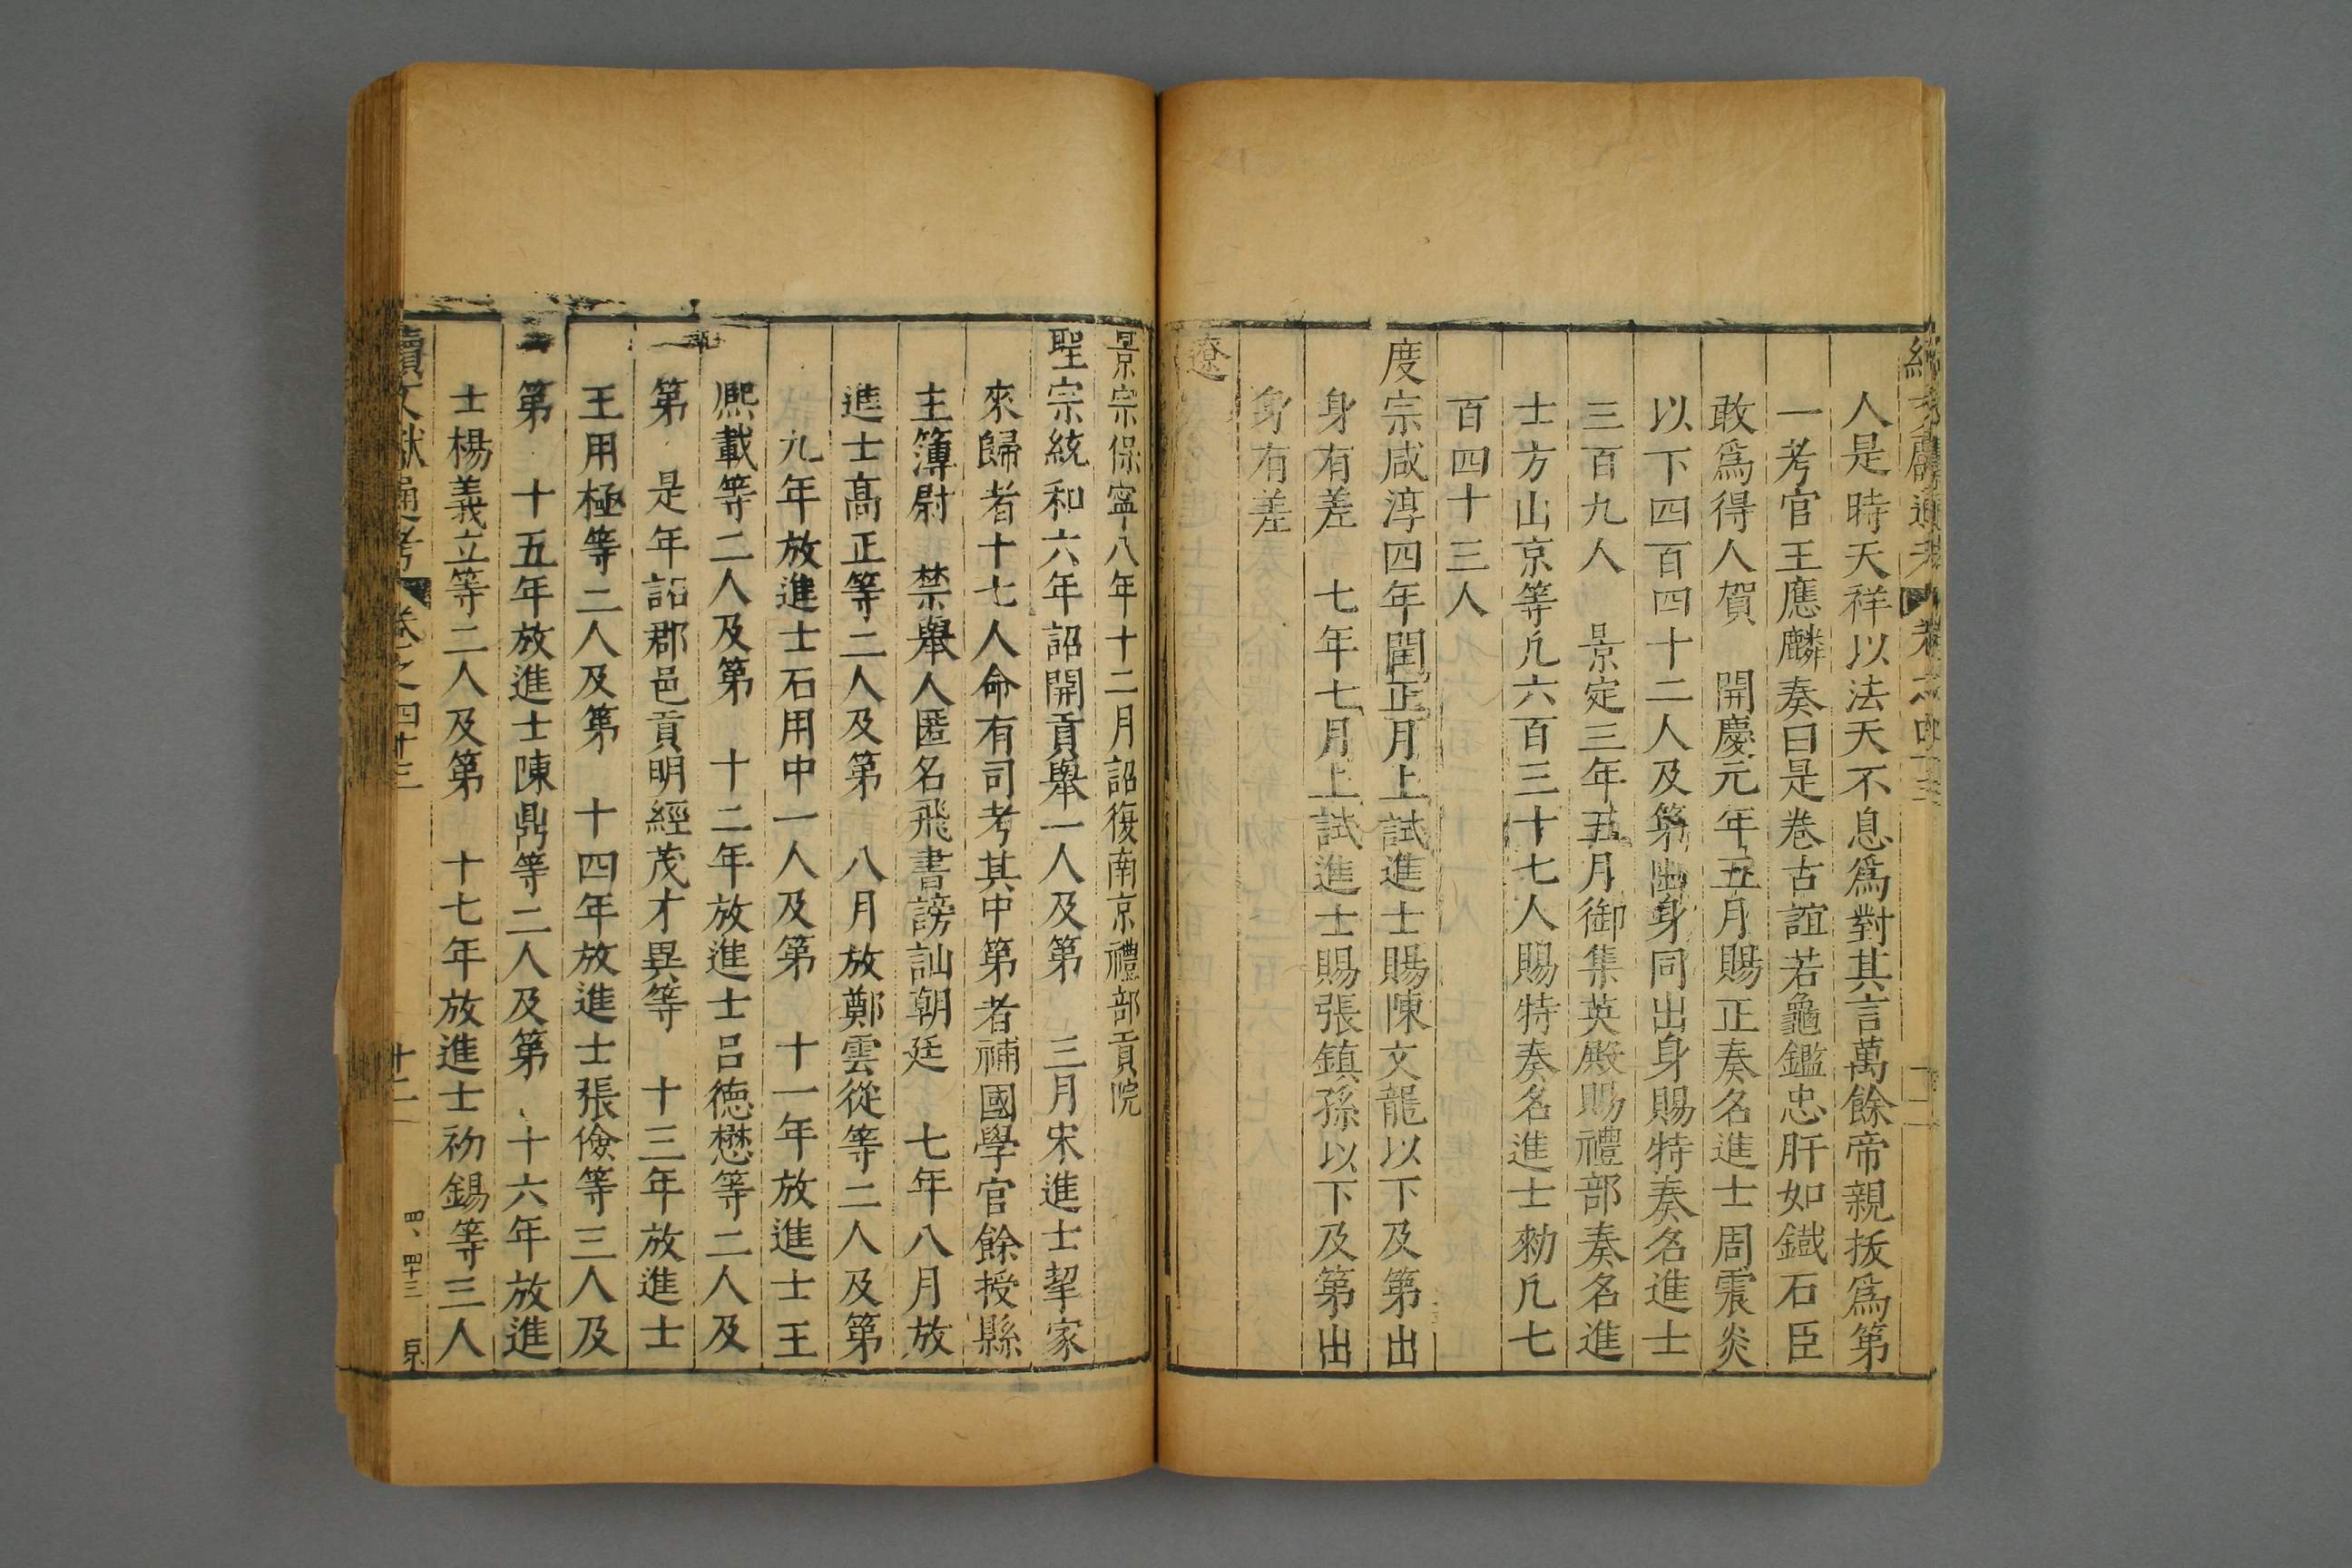 續文獻通考 卷之四十三 十二
人是時天祥以法天不息爲對其言萬餘帝親拔爲第
一考官王應麟奏曰是卷古誼若龜鑑忠肝如鐵石臣
敢爲得人賀 開慶元年五月賜正奏名進士周震炎
以下四百四十二人及第出身同出身賜特奏名進士
三百九人 景定三年五月御集英殿賜禮部奏名進
士方山京等凢六百三十七人賜特奏名進士勑凢七
百四十三人
度宗咸淳四年閏正月上試進士賜陳文龍以下及第出
身有差 七年七月上試進士賜張鎮孫以下及第出
身有差
遼
景宗保寧八年十二月詔復南京禮部貢院
聖宗統和六年詔開貢舉一人及第 三月宋進士挈家
來歸者十七人命有司考其中第者補國學官餘授縣
主簿尉 禁舉人匿名飛書謗訕朝廷 七年八月放
進士髙正等二人及第 八月放鄭雲從等二人及第
九年放進士石用中一人及第 十一年放進士王
熈載等二人及第 十二年放進士呂徳懋等二人及
第 是年詔郡邑貢明經茂才異等 十三年放進士
王用極等二人及第 十四年放進士張儉等三人及
第 十五年放進士陳鼎等二人及第 十六年放進
士楊義立等二人及第 十七年放進士初錫等三人
續文獻通考 卷之四十三 十二 四、四十三 京